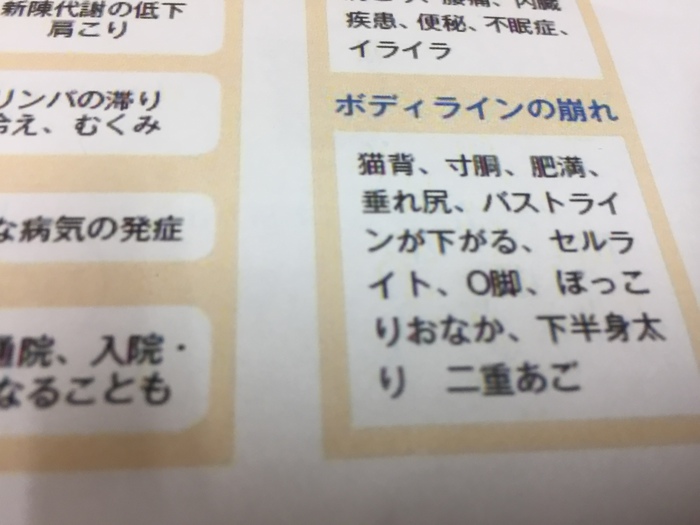 新陳代謝の低下
肩こり
リンパの滞り
冷え、むくみ
な病気の発症
通院、入院・
なることも
腰痛、内臓
疾患、便秘、不眠症、
イライラ
ボディラインの崩れ
猫背、寸胴、肥満、
垂れ尻、バストライ
ンが下がる、セルラ
イト、O脚、ぽっこ
りおなか、下半身太
り　二重あご